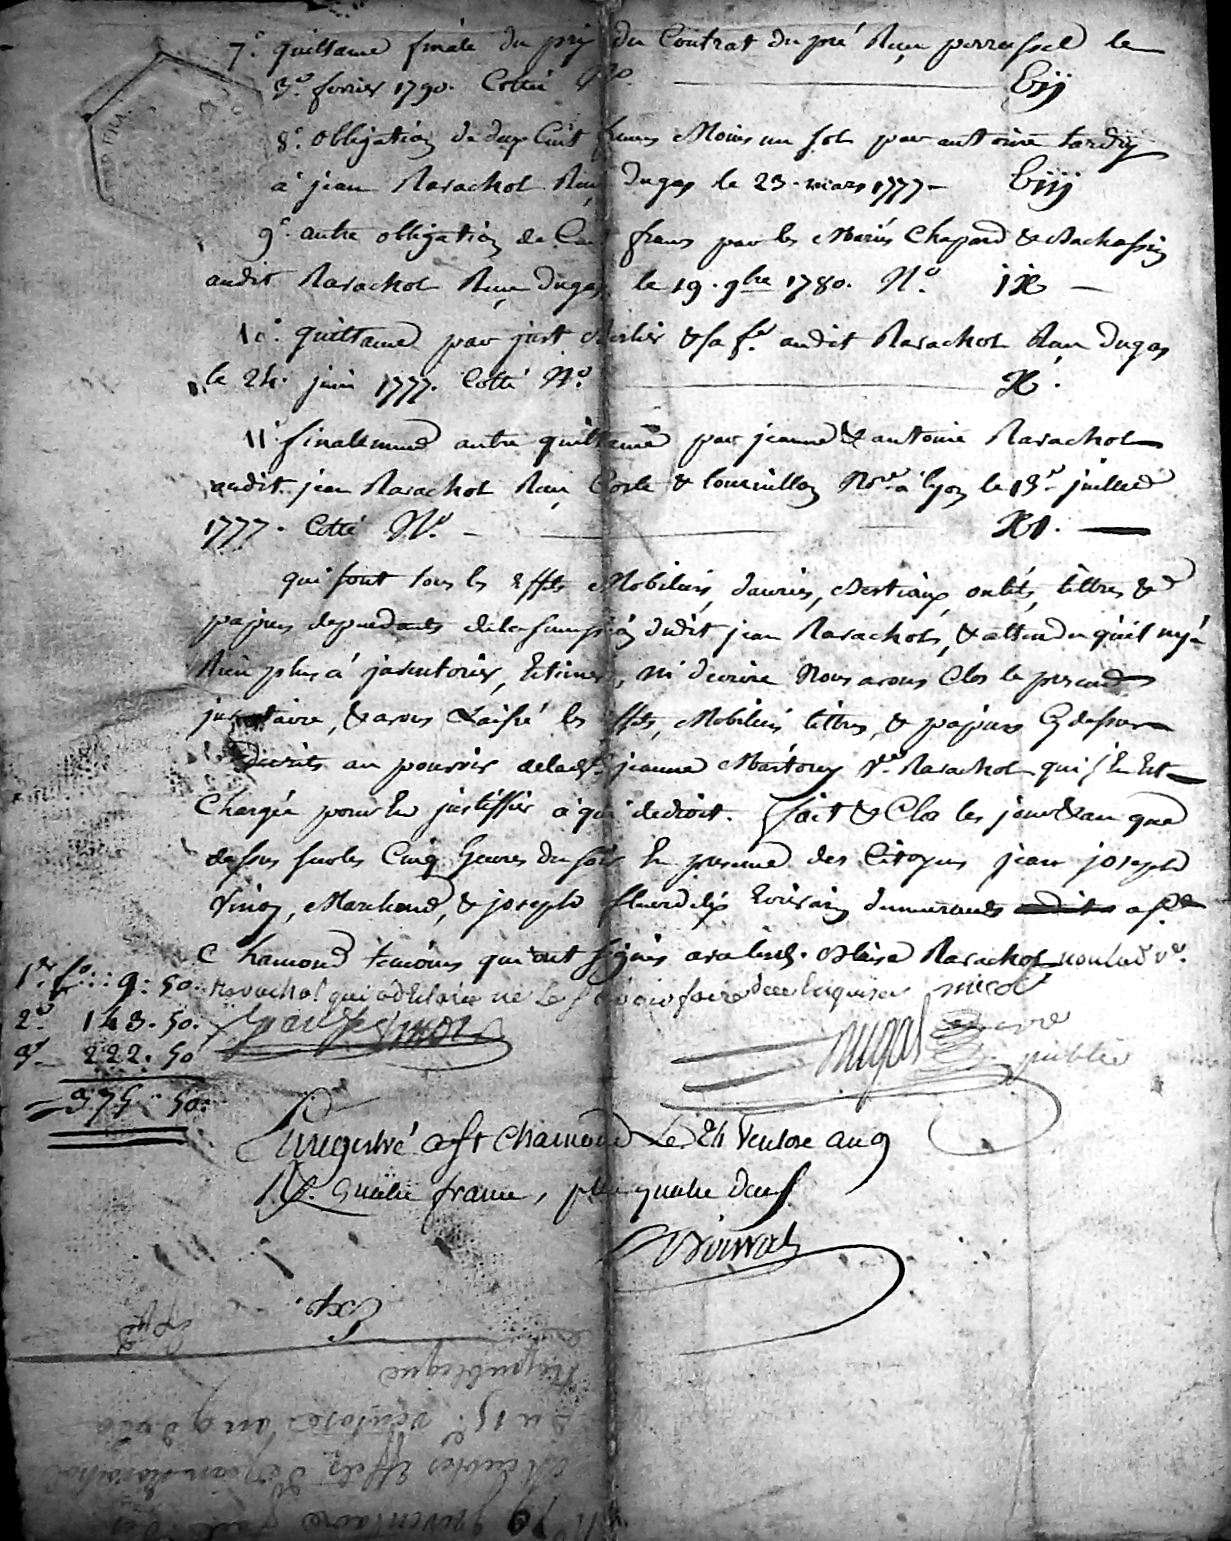 7.º quittance finale du prix du Contrat du pré Reçu perrussel le
3.e fevrier 1790. Cotté Nº. Vij
8.º obligation de dux Cent francs Moins un sol par antoine tardy
a jean Ravachol Reçu Dugas le 23. mars 1777 - Viij
9.º autre obligation de Cent francs par les Mariés Chapard &
audit Ravachol Reçu Dugas le 19. 9bre 1780. Nº. iX -
10.º quittance par just & sa fe. audit Ravachol Reçu Dugas
le 24. juin 1777. Cotté Nº. X.
11.º finallement autre quittance par jeanne & antoine Ravachol
audit jean Ravachol Reçu & Nore. a lyon le 13.e juillet
1777. Cotté Nº. - XI. -
qui sont tous les Effets Mobiliers, danrées, Bestiaux, outils, tittres &
papiers dependants de la succession dudit jean Ravachol, & attendu qu'il ny a
Rien plus a jnventorier, Estimer, ni decrire Nous avons Clos le present
jnventaire, & avons Laissé les Effets, Mobiliers tittres, & papiers Cy dessus
decrits au pouvoir de lade. jeanne Ve. Ravachol qui s'En Est
Chargée pour En justiffier a qui de droit. fait & Clos les jour & an que
dessus sur les Cinq heures du soir En presence des Citoyens jean joseph
Vinoy, Marchand, & joseph fleurdelix Ecrivain demeurants a St.
Chamond temoins qui ont signés avec Blaise Ravachol non lad. ve.
Ravachol qui a declaré ne le sçavoir faire de ce Enquise
1er. fo.: 9: 50.
2.e 143. 50.
3e 222. 50
375 50.
Dugas
public
Enregistré a St Chamond Le 24 Ventose an 9
R. quatre francs, plus quatre
Exp.
N.º 79 jnventaire fait des
Meubles Effets de jean Ravachol
du 15. ventose an 9 de la
Republique
Expé